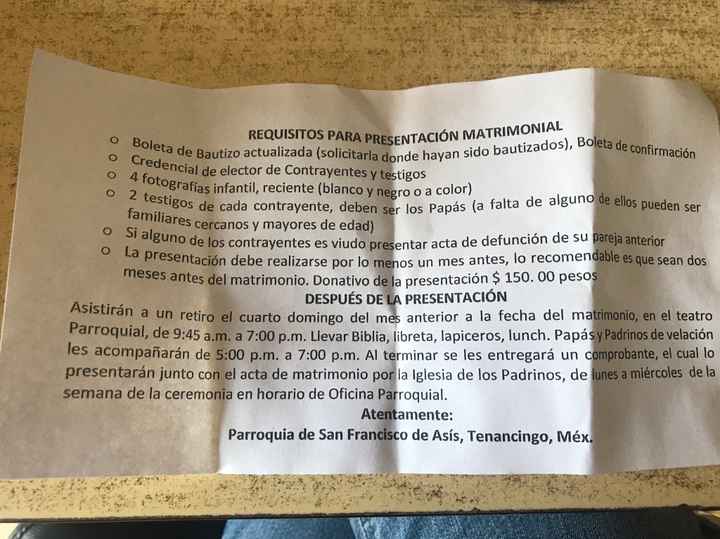 REQUISITOS PARA PRESENTACIÓN MATRIMONIAL
o Boleta de Bautizo actualizada (solicitarla donde hayan sido bautizados), Boleta de confirmación
o Credencial de elector de Contrayentes y testigos
o 4 fotografías infantil, reciente (blanco y negro o a color)
o 2 testigos de cada contrayente, deben ser los Papás (a falta de alguno de ellos pueden ser
familiares cercanos y mayores de edad)
o Si alguno de los contrayentes es viudo presentar acta de defunción de su pareja anterior
o La presentación debe realizarse por lo menos un mes antes, lo recomendable es que sean dos
meses antes del matrimonio. Donativo de la presentación $ 150. 00 pesos
DESPUÉS DE LA PRESENTACIÓN
Asistirán a un retiro el cuarto domingo del mes anterior a la fecha del matrimonio, en el teatro
Parroquial, de 9:45 a.m. a 7:00 p.m. Llevar Biblia, libreta, lapiceros, lunch. Papás y Padrinos de velación
les acompañarán de 5:00 p.m. a 7:00 p.m. Al terminar se les entregará un comprobante, el cual lo
presentarán junto con el acta de matrimonio por la Iglesia de los Padrinos, de lunes a miércoles de la
semana de la ceremonia en horario de Oficina Parroquial.
Atentamente:
Parroquia de San Francisco de Asís, Tenancingo, Méx.